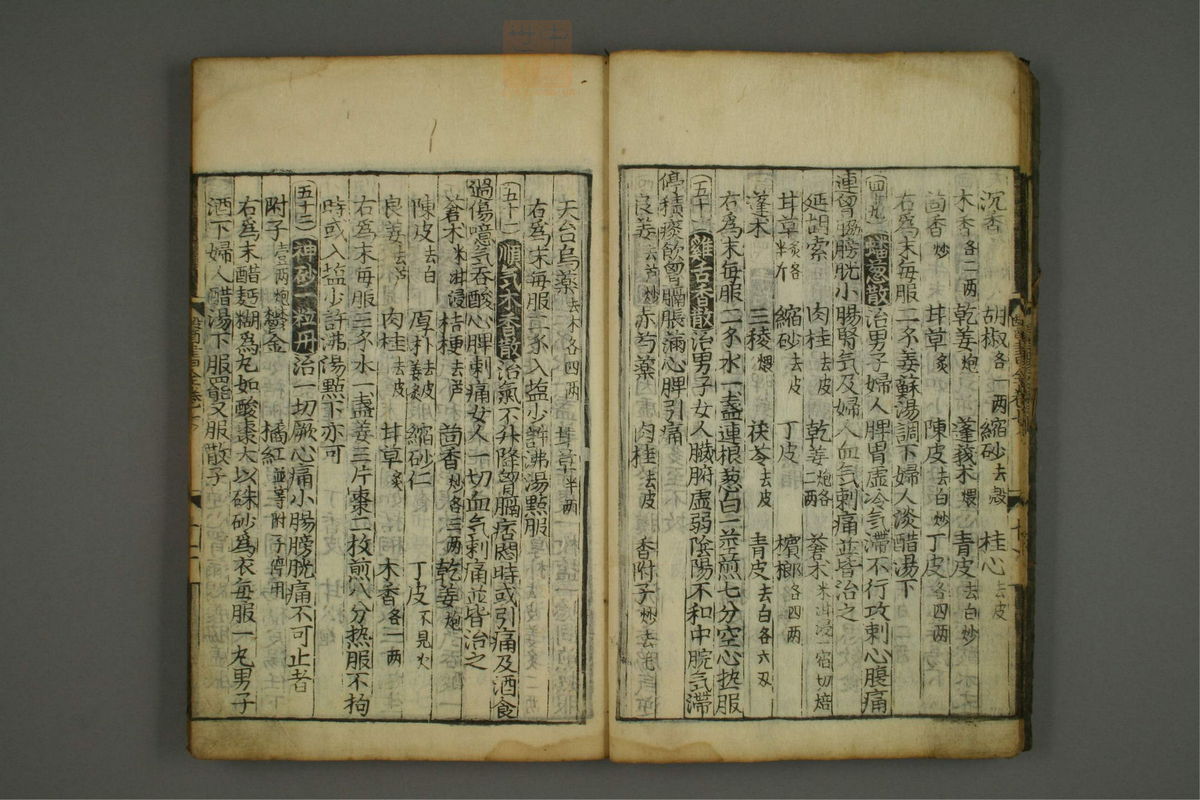 沉香 胡椒各一两 縮砂去殻 桂心去皮
木香各二两 乾姜炮 蓬莪朮煨 青皮去白炒
茴香炒 甘草炙 陳皮去白炒 丁皮各四两
右為末每服二錢姜蘇湯調下婦人淡醋湯下
四九 蟠葱散 治男子婦人脾胃虚冷氣滯不行攻刺心腹痛
連胷脇膀胱小腸腎氣及婦人血氣刺痛並皆治之
延胡索 肉桂去皮 乾姜炮各二两 蒼木米泔浸一宿切焙
甘草炙各半斤 縮砂去皮 丁皮 檳榔各四两
蓬木 三稜煨 茯苓去皮 青皮去白各六两
右為末每服二錢水一盞連根葱白一莖煎七分空心热服
五十 雞舌香散 治男子女人臓腑虚弱陰陽不和中脘氣滯
停積痰飲胷膈脹滿心脾引痛
良姜去芦炒 赤芍藥 肉桂去皮 香附子炒去毛
天台烏藥去木各四两 甘草半两
右為末每服一錢入塩少許沸湯點服
五十一 順气木香散 治氣不升降胷膈痞悶時或引痛及酒食
過傷噫气吞酸心脾刺痛女人一切血气刺痛並皆治之
蒼木米泔浸 桔梗去芦 茴香炒各三两 乾姜炮
陳皮去白 厚朴去皮姜炙 縮砂仁 丁皮不見火
良姜去芦 肉桂去皮 甘草炙 木香各一两
右為末每服三錢水一盞姜三片棗二枚煎八分热服不拘
時或入塩少許沸湯點下亦可
五十二 神砂一粒丹 治一切厥心痛小腸膀胱痛不可止者
附子壹两炮 欝金 橘紅並等附子停用
右為末醋麪糊為丸如酸棗大以硃砂爲衣每服一丸男子
酒下婦人醋湯下服罷又服散子